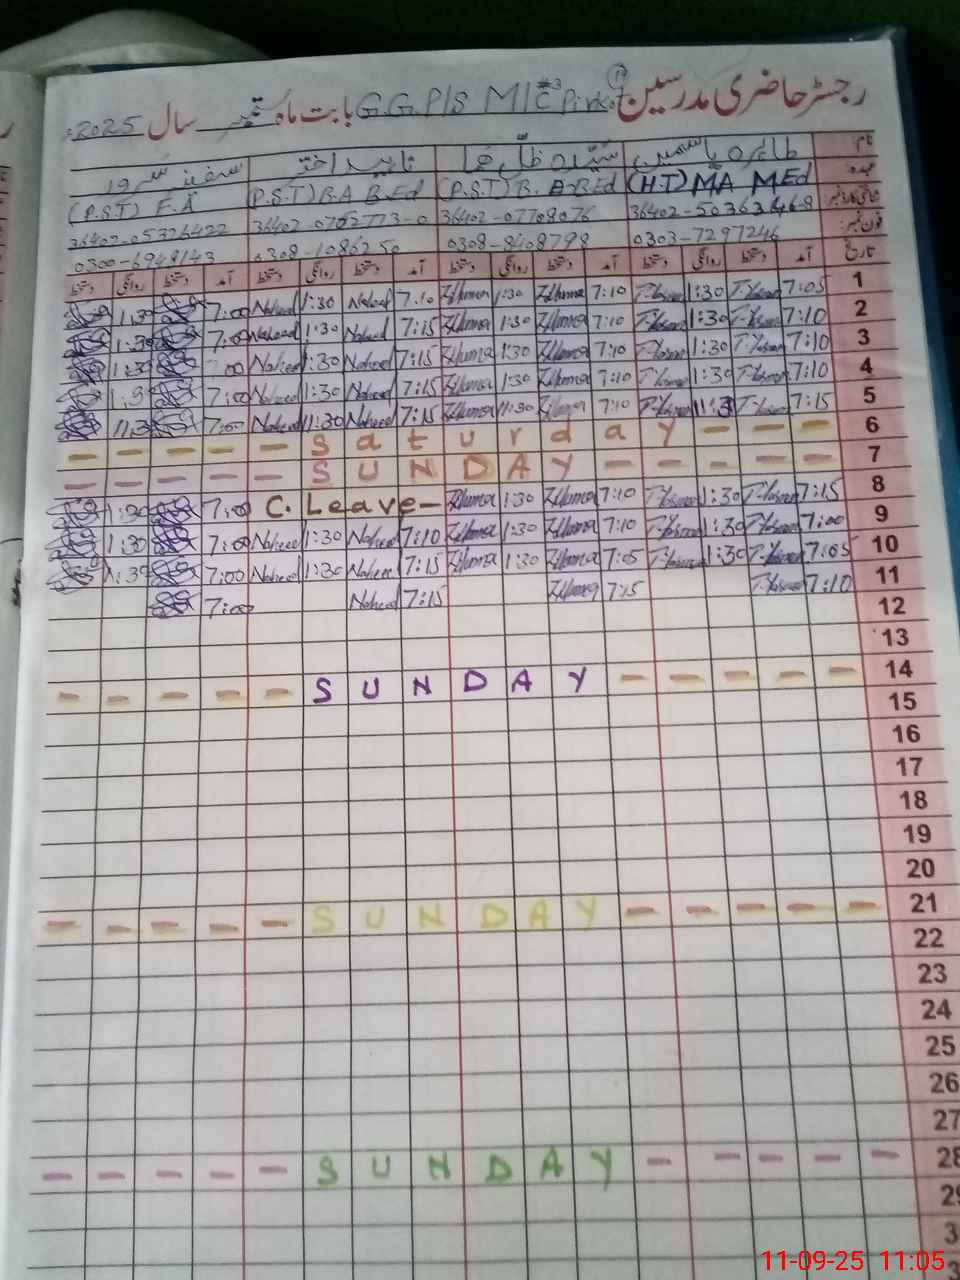 رجسٹر حاضری مدرسین G.G.P/S M/C #3 Pirkot بابت ماہ ستمبر سال 2025ء
نام طاہرہ یاسمین سیدہ ظل ہما ناہید اختر سفینہ سرور
عہدہ (H.T) MA MEd (P.S.T) B.A B.Ed (P.S.T) B.A B.Ed (P.S.T) F.A
شناختی کارڈ نمبر 36402-5036346-8 36402-07708076 36402-0702773-0 36402-05326422
فون نمبر: 0303-7297246 0308-8408798 0308-1086250 0300-6948143
تاریخ آمد دستخط روانگی دستخط آمد دستخط روانگی دستخط آمد دستخط روانگی دستخط آمد دستخط روانگی دستخط
1:30 Naheed 7:10 Zillhuma 1:30 Zillhuma 7:10 T-Yasmin 1:30 T-Yasmin 7:05 1
7:00 Naheed 1:30 Naheed 7:15 Zillhuma 1:30 Zillhuma 7:10 T-Yasmin 1:30 T-Yasmin 7:10 2
1:30 7:00 Naheed 1:30 Naheed 7:15 Zillhuma 1:30 Zillhuma 7:10 T-Yasmin 1:30 T-Yasmin 7:10 3
1:30 7:00 Naheed 1:30 Naheed 7:15 Zillhuma 1:30 Zillhuma 7:10 T-Yasmin 1:30 T-Yasmin 7:10 4
11:30 7:00 Naheed 11:30 Naheed 7:15 Zillhuma 11:30 Zillhuma 7:10 T-Yasmin 11:30 T-Yasmin 7:15 5
– – – – – Saturday – – – 6
– – – – – SUNDAY – – – – – 7
1:30 7:00 C. Leave – Zillhuma 1:30 Zillhuma 7:10 T-Yasmin 1:30 T-Yasmin 7:15 8
1:30 7:00 Naheed 1:30 Naheed 7:10 Zillhuma 1:30 Zillhuma 7:10 T-Yasmin 1:30 T-Yasmin 7:00 9
1:30 7:00 Naheed 1:30 Naheed 7:15 Zillhuma 1:30 Zillhuma 7:05 T-Yasmin 1:30 T-Yasmin 7:05 10
7:00 Naheed 7:15 Zillhuma 7:15 T-Yasmin 7:10 11
12
13
– – – – – SUNDAY – – – – – 14
15
16
17
18
19
20
– – – – – SUNDAY – – – – – 21
22
23
24
25
26
27
– – – – – SUNDAY – – – – – 28
29
11-09-25 11:05